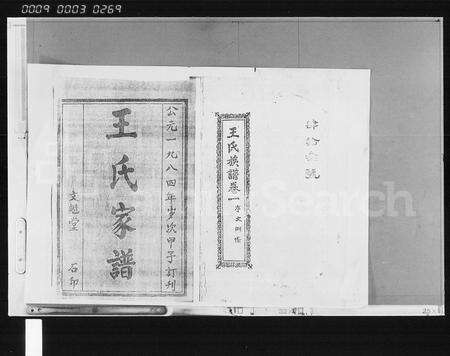 0009 0003 0269
公元一九八四年岁次甲子訂刊
王氏家譜
石印
王氏族譜卷一
FamilySearch